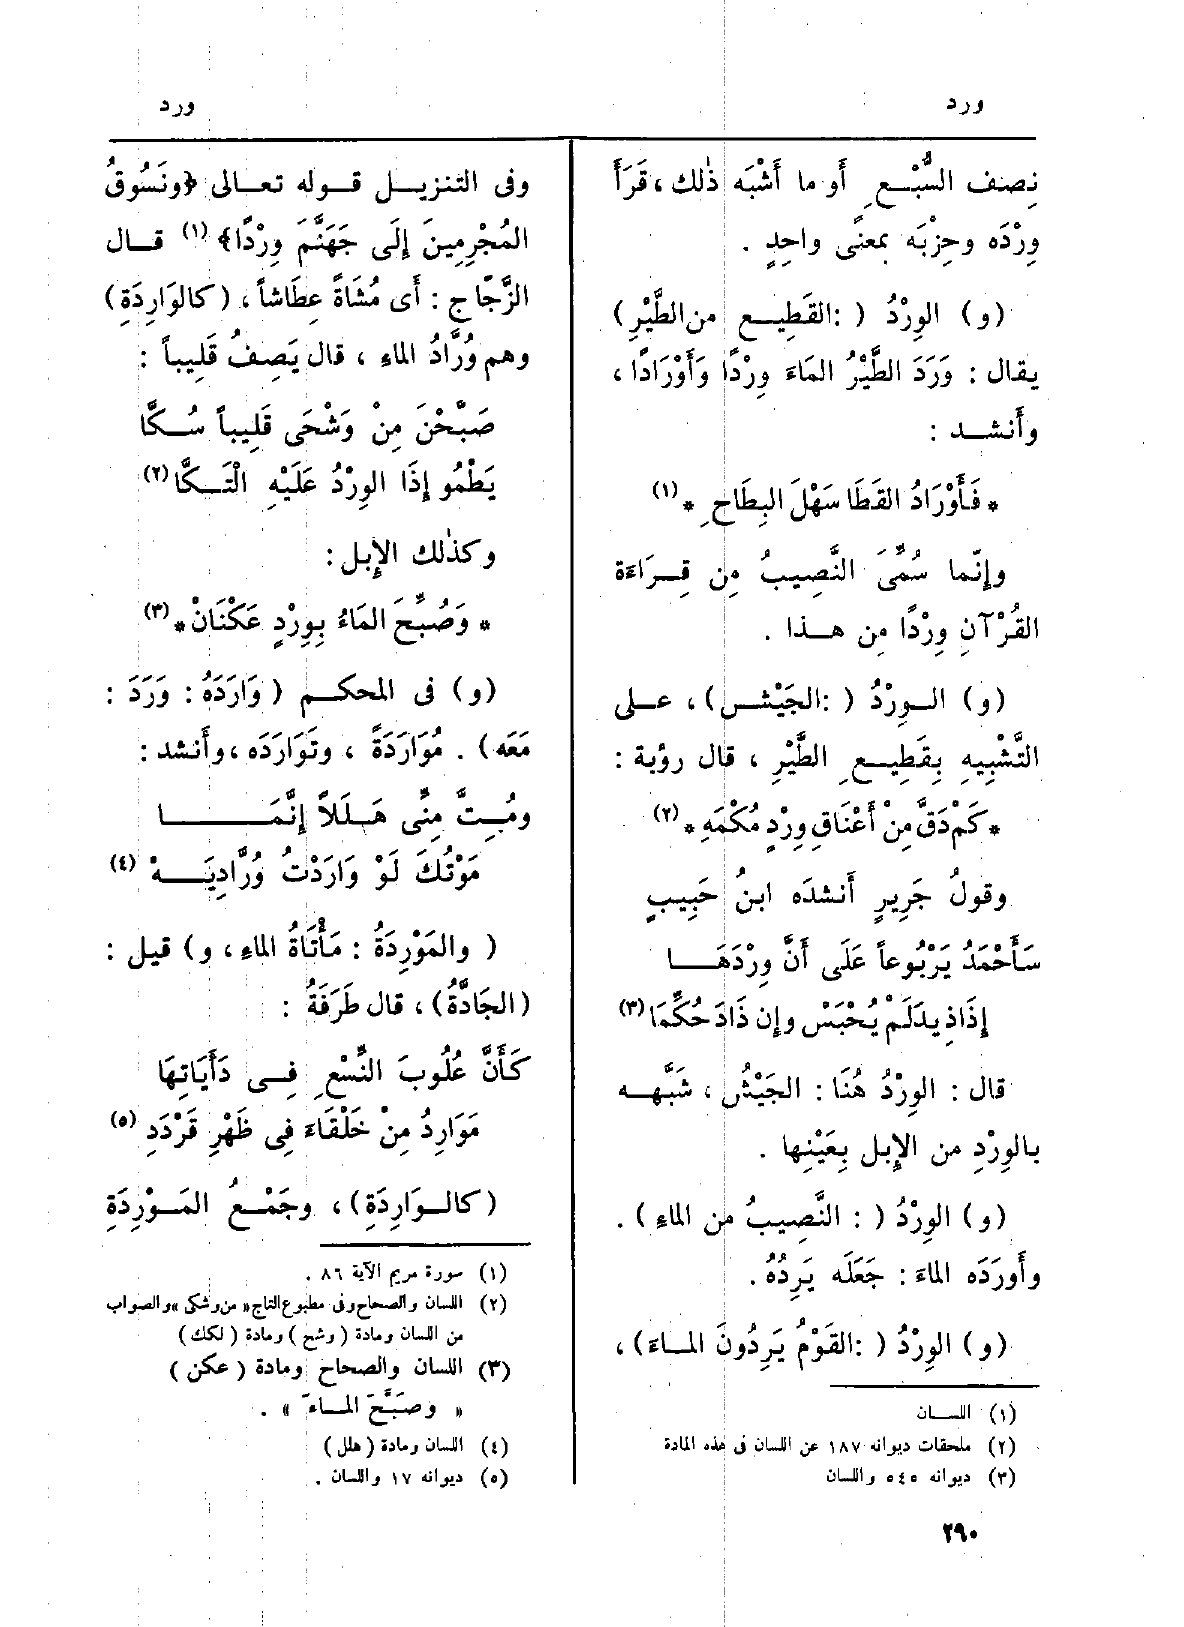 ورد
ورد
نِصف السُّبْعِ أَو ما أَشْبَه ذٰلك ، قَرَأَ
وِرْدَه وحِزْبَه بمعنًى واحِدٍ .
(و) الوِرْدُ ( :القَطِيع من الطَّيْرِ)
يقال : وَرَدَ الطَّيْرُ المَاءَ وِرْدًا وَأَوْرَادًا ،
وأَنشد :
* فَأَوْرَادُ القَطَا سَهْلَ البِطَاحِ * (١)
وإِنّما سُمِّيَ النَّصِيبُ مِن قِرَاءَة
القُرْآنِ وِرْدًا مِن هذا .
(و) الوِرْدُ ( :الجَيْش) ، على
التَّشْبِيهِ بِقَطِيعِ الطَّيْرِ ، قال رؤبة :
* كم دَقَّ مِنْ أَعْنَاقِ وِرْدٍ مُكْمَهِ * (٢)
وقولُ جَرِيرٍ أَنشدَه ابنُ حَبِيبٍ
سَأَحْمَدُ يَرْبُوعاً عَلَى أَنَّ وِرْدَهَا
إِذَا ذِيدَ لَمْ يُحْبَسْ وإِن ذَادَ حُكِّمَا (٣)
قال : الوِرْدُ هُنَا : الجَيْشُ ، شَبَّهه
بالوِرْدِ من الإِبل بِعَيْنِها .
(و) الوِرْدُ ( : النَّصِيبُ من الماءِ ) .
وأَورَدَه الماءَ : جَعَلَه يَرِدُهُ .
(و) الوِرْدُ ( :القَوْمُ يَرِدُونَ الماءَ) ،
(١) اللسان
(٢) ملحقات ديوانه ١٨٧ عن اللسان فى هذه المادة
(٣) ديوانه ٥٤٥ واللسان
وفى التنزيل قوله تعالى ﴿ونَسُوقُ
المُجْرِمِينَ إِلَى جَهَنَّمَ وِرْدًا﴾ (١) قال
الزَّجّاج : أَى مُشَاةً عِطَاشاً ، (كالوَارِدَةِ)
وهم وُرَّادُ الماءِ ، قال يَصِفُ قَلِيباً :
صَبَّحْنَ مِنْ وَشْحَى قَلِيباً سُكَّا
يَطْمُو إِذَا الوِرْدُ عَلَيْهِ الْتَكَّا (٢)
وكذٰلك الإِبل :
* وَصُبِّحَ المَاءُ بِوِرْدٍ عَكْنَانْ * (٣)
(و) فى المحكم ( وَارَدَهُ : وَرَدَ :
مَعَه) . مُوَارَدَةً ، وتَوَارَدَه ، وأَنشد :
ومُِتَّ مِنِّى هَلَلاً إِنَّمَا
مَوْتُكَ لَوْ وَارَدْتُ وُرَّادِيَهْ (٤)
( والمَوْرِدَةُ : مَأْتَاةُ الماءِ ، و) قيل :
(الجَادَّةُ) ، قال طَرَفَةُ :
كَأَنَّ عُلُوبَ النِّسْعِ فِى دَأَيَاتِهَا
مَوَارِدُ مِنْ خَلْقَاءَ فِى ظَهْرِ قَرْدَدِ (٥)
(كالوَارِدَةِ) ، وجَمْعُ المَوْرِدَةِ
(١) سورة مريم الآية ٨٦ .
(٢) اللسان والصحاح وفى مطبوع التاج « من وشكى » والصواب
من اللسان ومادة ( وشح ) ومادة ( لكك )
(٣) اللسان والصحاح ومادة ( عكن )
« وصَبَّحَ الماءَ » .
(٤) اللسان ومادة ( هلل )
(٥) ديوانه ١٧ واللسان .
٢٩٠